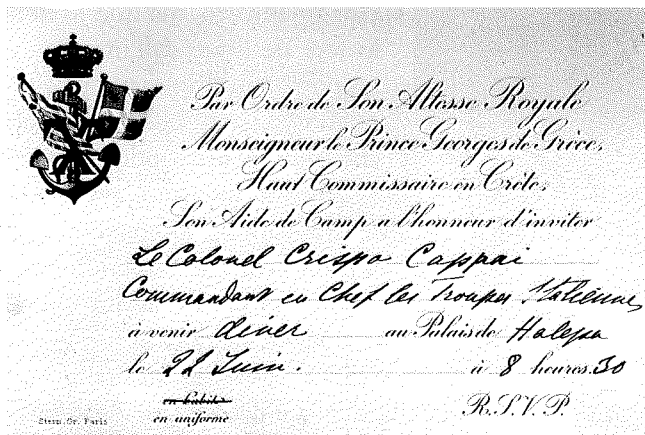 Par Ordre de Son Altesse Royale
Monseigneur le Prince Georges de Grèce,
Haut Commissaire en Crète,
Son Aide de Camp a l'honneur d'inviter
Le Colonel Crispo Cappai
Commandant en Chef les Troupes Italiennes
à venir dîner au Palais de Halepa
le 22 Juin. à 8 heures.30
en habit
en uniforme
R.S.V.P.
Stern. Gr. Paris